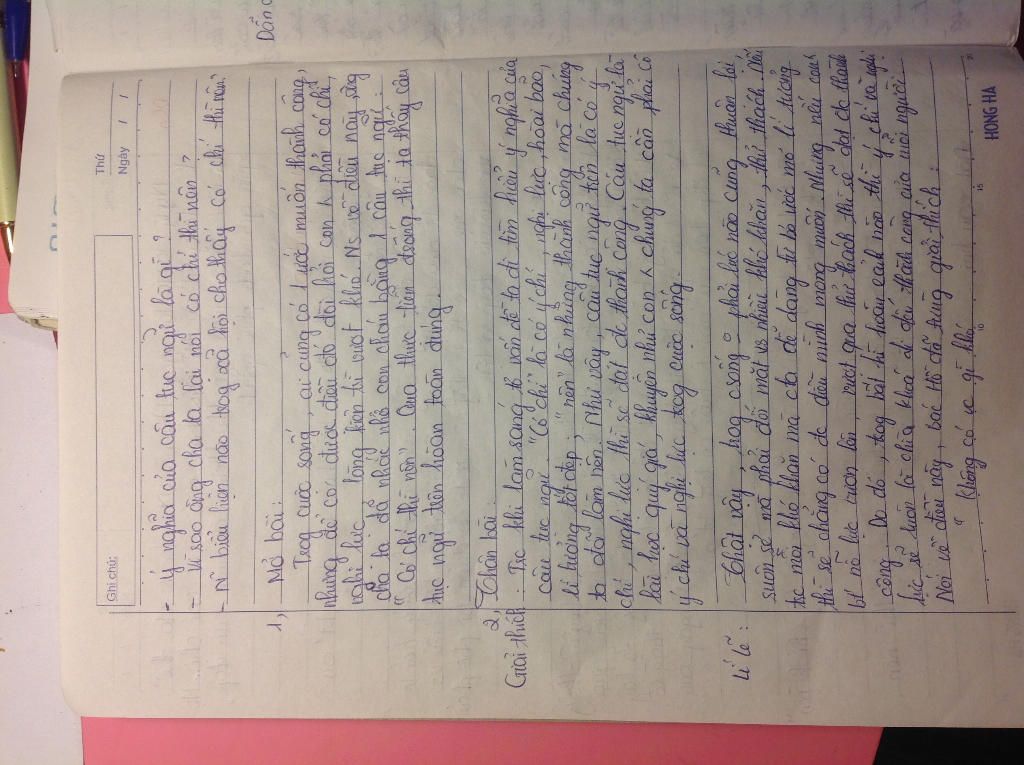 Dẫn c
Thứ
Ngày / /
Ghi chú:
- Ý nghĩa của câu tục ngữ là gì ?
- Vì sao ông cha ta lại nói có chí thì nên ?
- N~ biểu hiện nào trog xã hội cho thấy có chí thì nên?
1, Mở bài :
Trog cuộc sống, ai cũng có 1 ước muốn thành công,
nhưng để có được điều đó đòi hỏi con ng phải có chí,
nghị lực, lòng kiên trì vượt khó. Ns về điều này, ông
cha ta đã nhắc nhở con cháu bằng 1 câu tục ngữ :
" Có chí thì nên". Qua thực tiễn đsống thì ta thấy câu
tục ngữ trên hoàn toàn đúng.
2, Thân bài :
Giải thích : Trc khi làm sáng tỏ vấn đề ta đi tìm hiểu ý nghĩa của
câu tục ngữ. "Có chí" là có ý chí, nghị lực, hoài bão,
lí tưởng tốt đẹp; "nên" là những thành công mà chúng
ta đã làm nên. Như vậy, câu tục ngữ trên là có ý
chí, nghị lực thì sẽ đạt đc thành công. Câu tục ngữ là
bài học quý giá, khuyên nhủ con ng chúng ta cần phải có
ý chí và nghị lực trog cuộc sống.
Lí lẽ : Thật vậy, trog cuộc sống o phải lúc nào cũng thuận lợi
suôn sẻ mà phải đối mặt vs nhiều khó khăn, thử thách. Nếu
trc mỗi khó khăn mà ta dễ dàng từ bỏ ước mơ lí tưởng
thì sẽ chẳng có đc điều mình mong muốn. Nhưng nếu con ng
bt nỗ lực vươn lên, vượt qua thử thách thì sẽ đạt đc thành
công. Do đó, trog bất kì hoàn cảnh nào thì ý chí và nghị
lực sẽ luôn là chìa khoá đi đến thành công của mỗi người.
Nói về điều này, bác Hồ đã từng giải thích :
" Không có vc gì khó
HONG HA
10
15